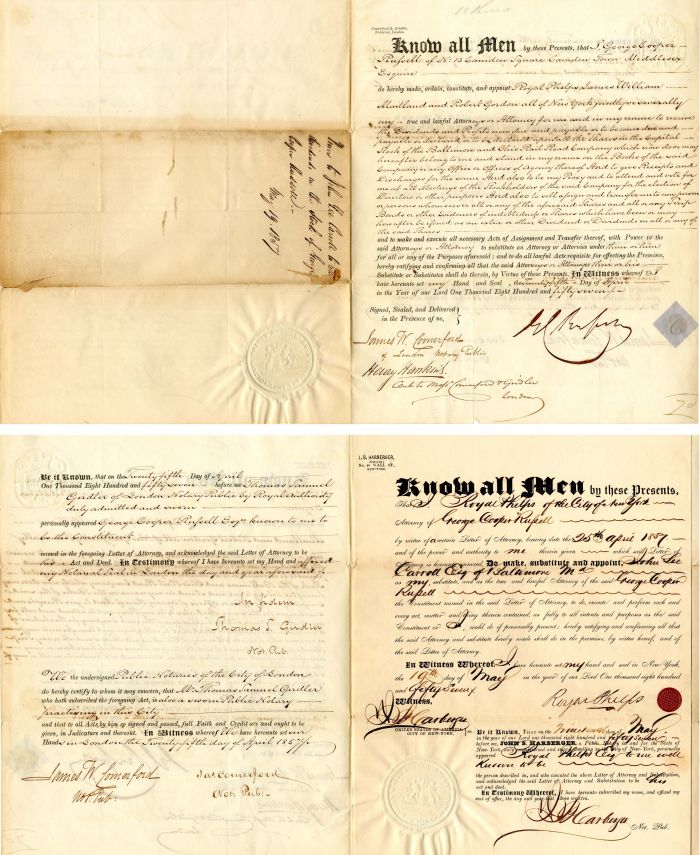 Know all Men by these Presents, that I, George Cooper
Russell of No. 13 Camden Square Camden Town Middlesex
Esquire
do hereby make, ordain, constitute, and appoint Royal Phelps, James William
Maitland and Robert Gordon all of New York jointly or severally
my true and lawful Attorneys or Attorney for me and in my name to receive
the Dividends and Profits now due and payable or to become due and
payable or declared or to be declared upon all the Shares in the Capital
Stock of the Baltimore and Ohio Rail Road Company which now do or may
hereafter belong to me and stand in my name on the Books of the said
Company in any Office or Offices of Agency thereof And to give Receipts and
Discharges for the same And also to be my Proxy and to attend and vote for
me at all Meetings of the Stockholders of the said Company for the election of
Directors or other purposes And also to sell assign and transfer to any person
or persons whomsoever all or any of the aforesaid Shares and all or any Scrip
Bonds or other Evidences of indebtedness or Shares which have been or may
hereafter be issued as an extra or other Dividend or Dividends on all or any of
the said Shares
and to make and execute all necessary Acts of Assignment and Transfer thereof, with Power to the
said Attorneys or Attorney to substitute an Attorney or Attornies under them or him
for all or any of the Purposes aforesaid; and to do all lawful Acts requisite for effecting the Premises,
hereby ratifying and confirming all that the said Attorneys or Attorney them or his
Substitute or Substitutes shall do therein, by Virtue of these Presents. In Witness whereof I
have hereunto set my Hand and Seal, the Twenty fifth Day of April
in the Year of our Lord One Thousand Eight Hundred and fifty seven
Signed, Sealed, and Delivered
in the Presence of us,
James W. Comerford
of London Notary Public
Henry Hawkins
Clerk to Messrs Comerford & Girdler
London
May 19 1857
Be it Known, that on the Twenty fifth Day of April
One Thousand Eight Hundred and fifty seven before me Thomas Samuel
Girdler of London Notary Public by Royal Authority
duly admitted and sworn
personally appeared George Cooper Russell Esqre known to me to
be the Constituent
named in the foregoing Letter of Attorney, and acknowledged the said Letter of Attorney to be
his Act and Deed. In Testimony whereof I have hereunto set my Hand and affixed
my Notarial Seal in London the day and year aforesaid
Thomas S. Girdler
Not. Pub.
We the undersigned Public Notaries of the City of London
do hereby certify to whom it may concern, that Mr. Thomas Samuel Girdler
who hath subscribed the foregoing Act, is also a sworn Public Notary
practising in this City
and that to all Acts by him so signed and passed, full Faith and Credit are and ought to be given,
in Judicature and thereout. In Witness whereof We have hereunto set our
Hands in London the Twenty fifth day of April 1857.
James W. Comerford
Not. Pub:
Jas Comerford
Not: Pub:
J. S. HARBERGER,
NOTARY
No. 10 WALL ST.
NEW-YORK.
Know all Men by these Presents,
That I Royal Phelps of the City of New York
Attorney of George Cooper Russell
by virtue of a certain Letter of Attorney, bearing date the 25th April 1857
and of the power and authority to me therein given which Letter of
Attorney is hereunto annexed, Do make, substitute and appoint John Lee
Carroll Esq of Baltimore Md
as my substitute, and as the true and lawful Attorney of the said George Cooper
Russell
the Constituent named in the said Letter of Attorney, to do, execute and perform each such
may act, matter and thing therein contained, as fully to all intents and purposes as the said
Constituent or I could do if personally present; hereby ratifying and confirming all that
the said Attorney and substitute hereby made shall do in the premises, by virtue hereof, and of
the said Letter of Attorney.
In Witness Whereof, I have hereunto set my hand and seal in New-York,
the 19th day of May in the year of our Lord one thousand eight hundred
and fifty seven
Witness,
Royal Phelps
J S Harberger
UNITED STATES OF AMERICA
CITY OF NEW-YORK,
Be it Known, That on the nineteenth of May
in the year of our Lord one thousand eight hundred and fifty seven
before me, JOHN S. HARBERGER, a Public Notary in and for the State of
New-York, personally
Royal Phelps Esq to me well
known to be
the person described in, and who executed the above Letter of Attorney and Substitution,
and acknowledged the said Letter of Attorney and Substitution to be his
act and deed.
In Testimony Whereof, I have hereunto subscribed my name, and affixed my
seal of office, the day and year last above written.
J S Harberger Not. Pub.